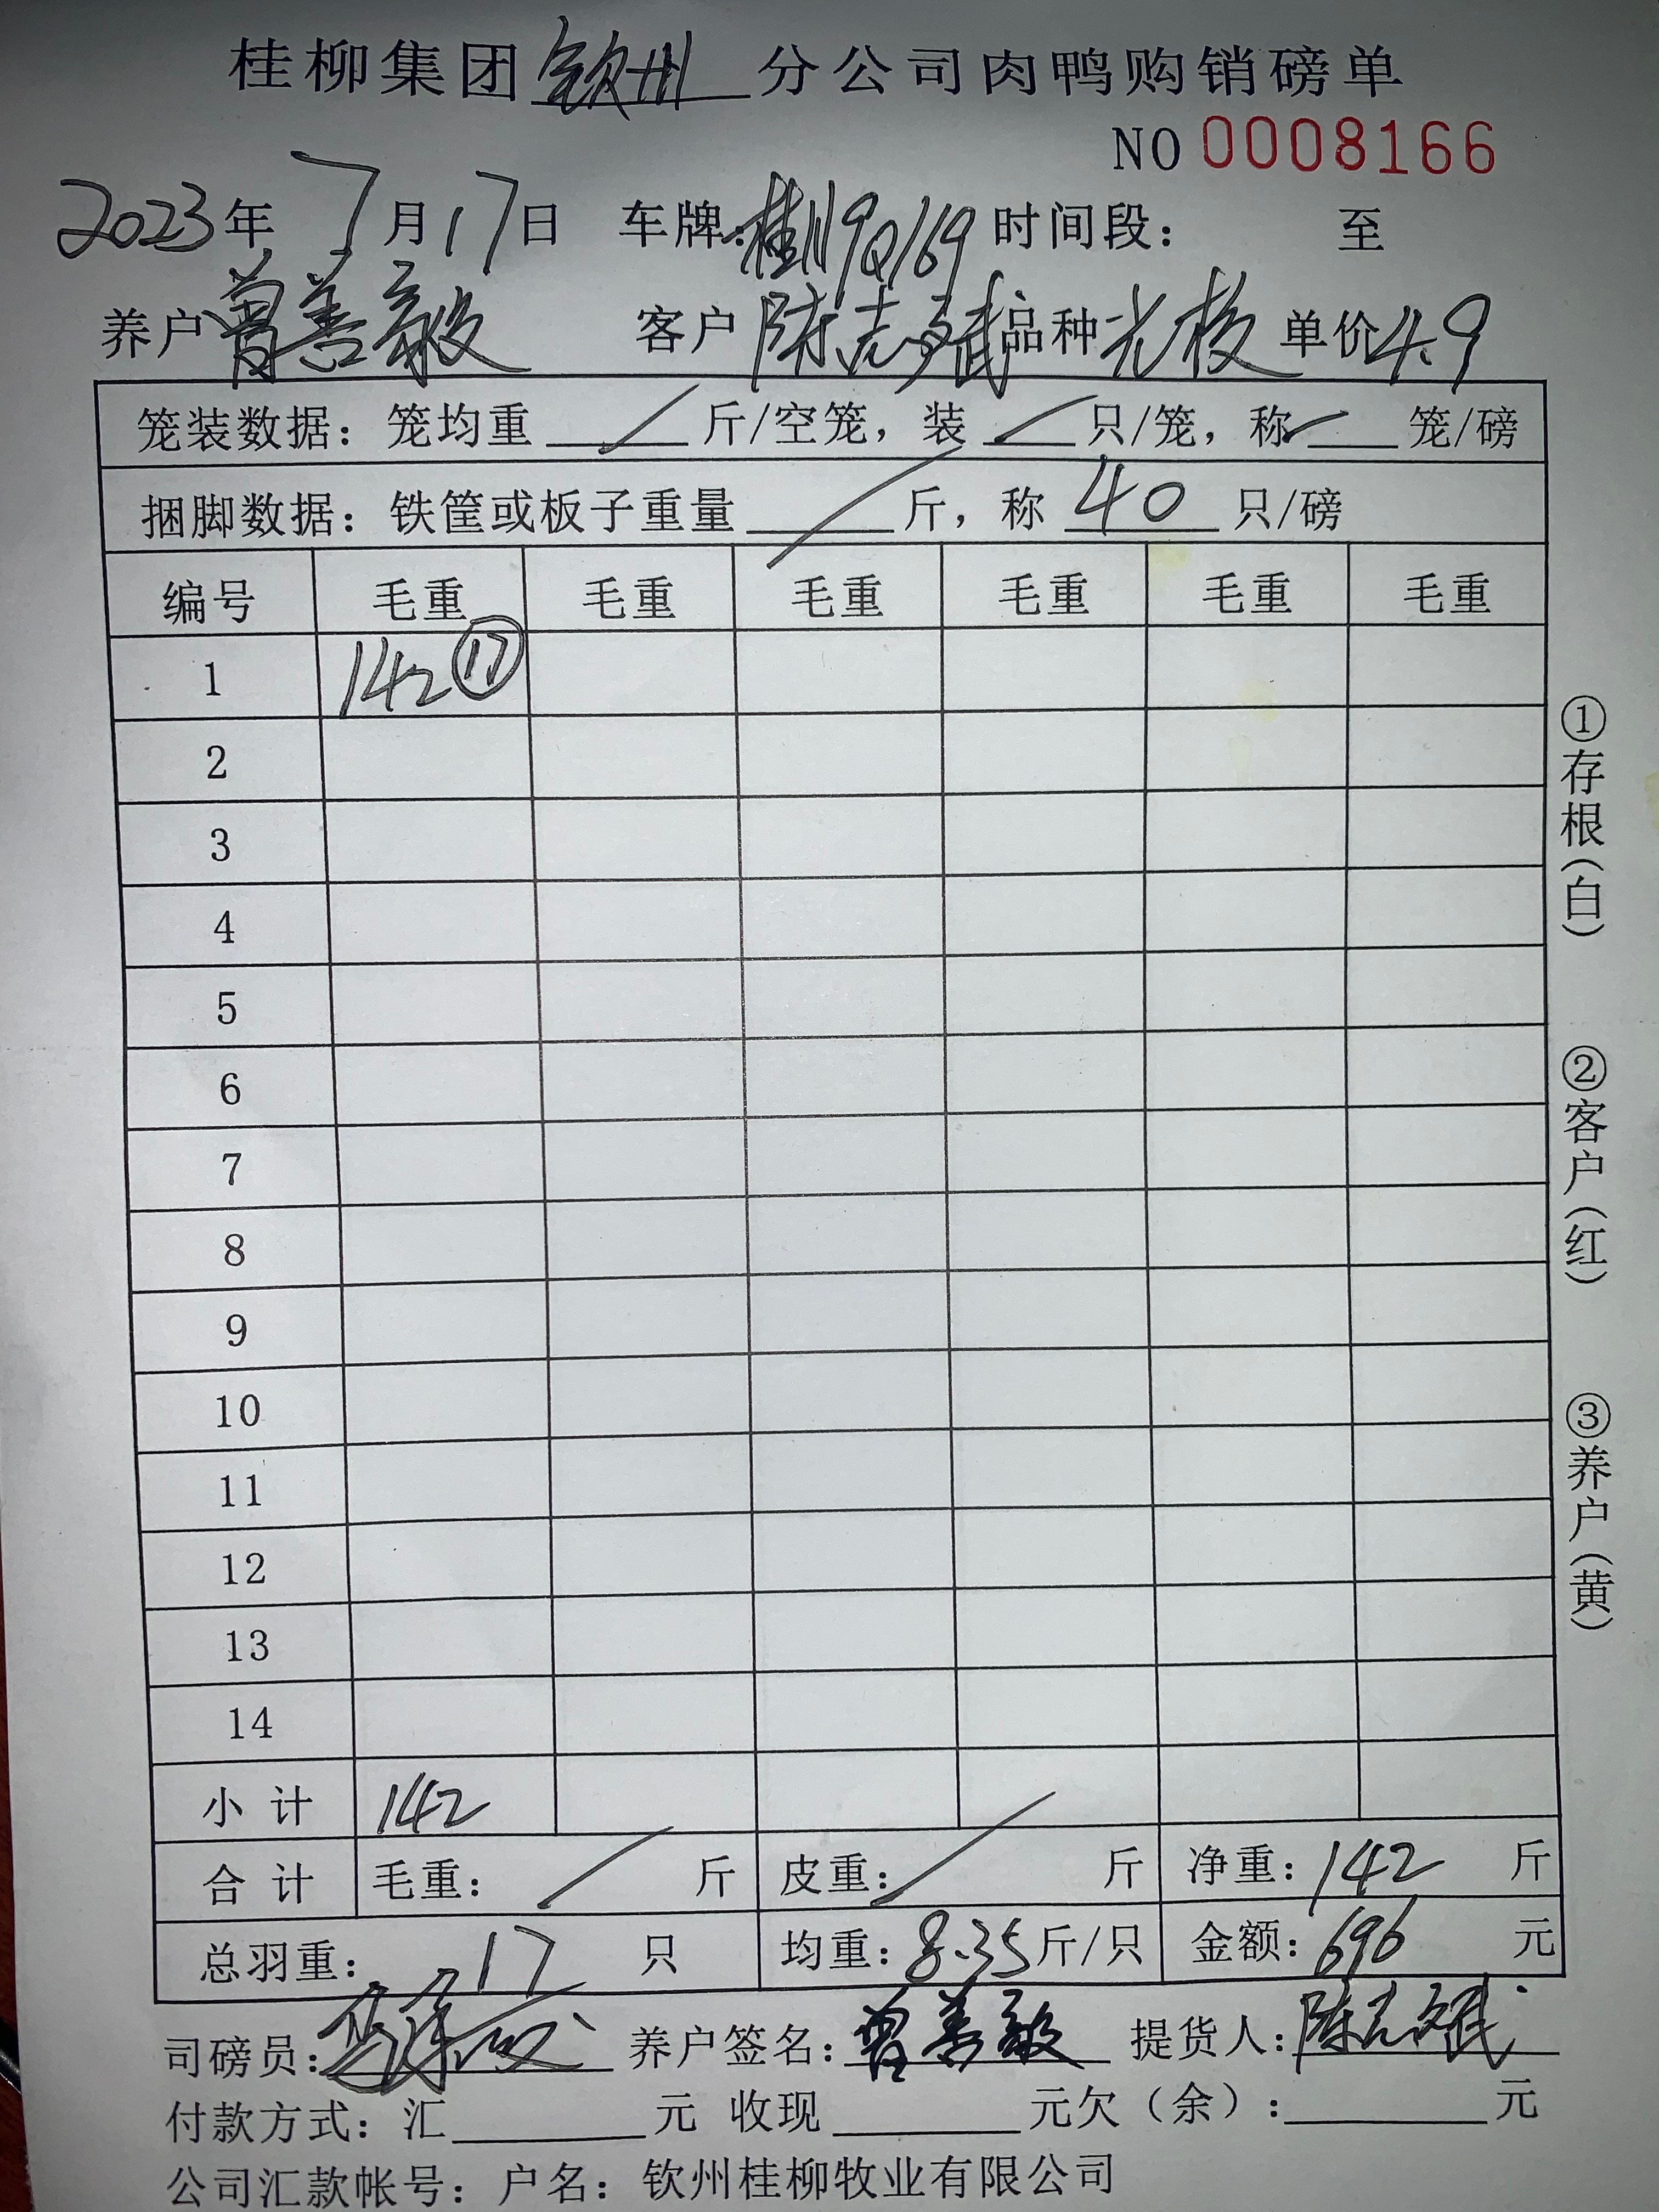 桂柳集团钦州分公司肉鸭购销磅单
NO 0008166
2023年7月17日 车牌:桂N9Q169 时间段: 至
养户 曾善敏 客户 陈志斌 品种 单价4.9
笼装数据:笼均重 / 斤/空笼,装 / 只/笼,称 / 笼/磅
捆脚数据:铁筐或板子重量 / 斤,称 40 只/磅
编号 毛重 毛重 毛重 毛重 毛重 毛重
1 142 ⑰
2
3
4
5
6
7
8
9
10
11
12
13
14
小计 142
合计 毛重: / 斤 皮重: / 斤 净重:142 斤
总羽重: 17 只 均重:8.35斤/只 金额:696 元
司磅员: 养户签名:曾善敏 提货人:陈志斌
付款方式:汇 元 收现 元欠(余): 元
公司汇款帐号:户名:钦州桂柳牧业有限公司
①存根(白)
②客户(红)
③养户(黄)